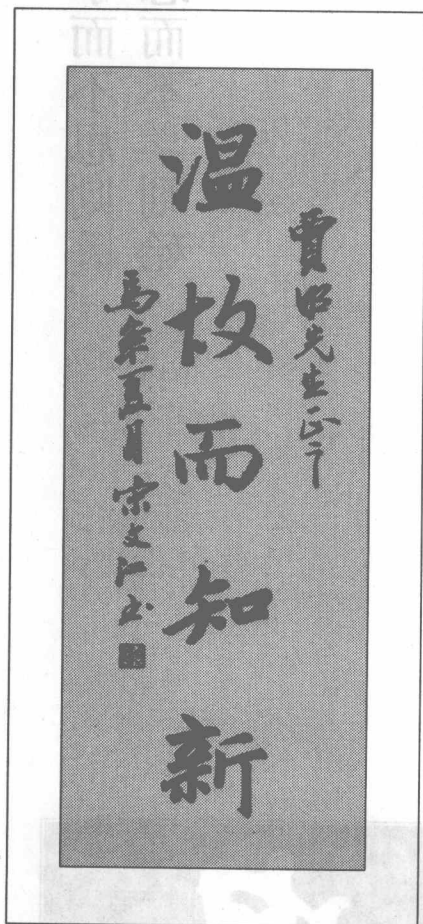 賈昭先生正之
温故而知新
馬年夏月宋文江书